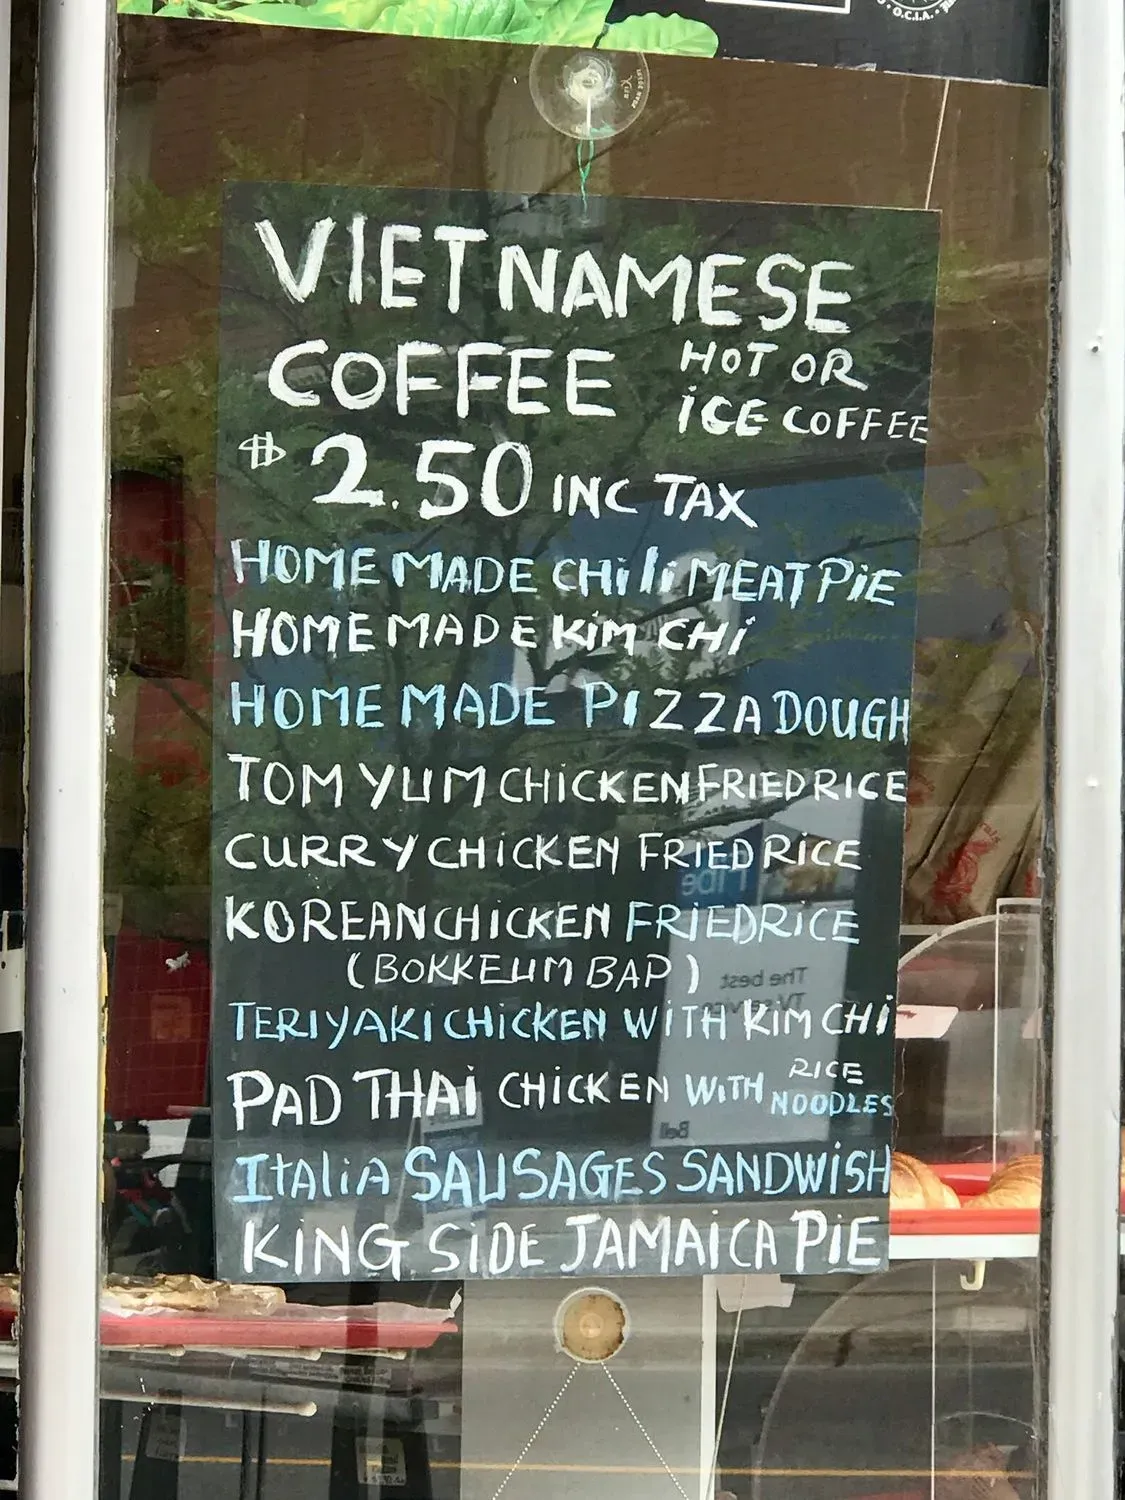 O.C.I.A.
VIETNAMESE
COFFEE HOT OR
ICE COFFEE
$2.50 INC TAX
HOME MADE CHiLi MEAT PiE
HOME MADE KiM CHi
HOME MADE PIZZA DOUGH
TOM YUM CHiCKEN FRIED RICE
CURRY CHiCKEN FRIED RiCE
KOREAN CHiCKEN FRiED RiCE
(BOKKEUM BAP)
TERIYAKI CHiCKEN WiTH KiM CHi
PAD THAi CHiCKEN WiTH RICE
NOODLES
ItALiA SAUSAGES SANDWiSH
KiNG SiDE JAMAiCA PiE
Fibe
The best
TV servic
Bell